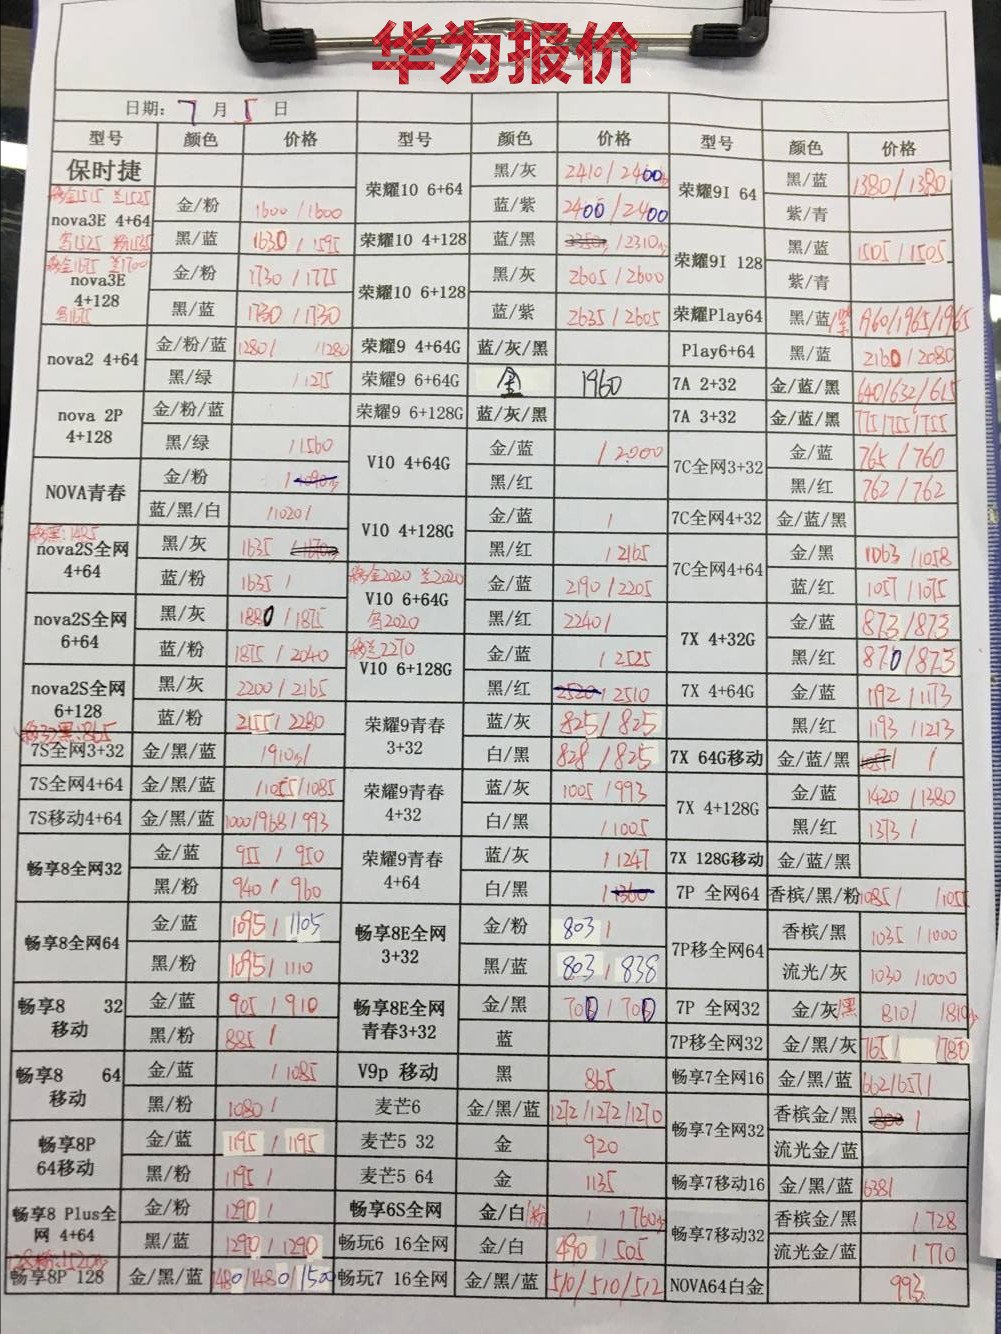 华为报价
日期: 7 月 5 日
型号 颜色 价格 型号 颜色 价格 型号 颜色 价格
保时捷
nova3E 4+64 金/粉 1600/1600
黑/蓝 1630/1595
nova3E 4+128 金/粉 1730/1775
黑/蓝 1730/1730
nova2 4+64 金/粉/蓝 1280/ /1280
黑/绿 /1275
nova 2P 4+128 金/粉/蓝
黑/绿 /1560
NOVA青春 金/粉
蓝/黑/白 /1020/
nova2S全网 4+64 黑/灰 1635
蓝/粉 1635/
nova2S全网 6+64 黑/灰 1880/1875
蓝/粉 1875/2040
nova2S全网 6+128 黑/灰 2200/2165
蓝/粉 2155/2280
7S全网3+32 金/黑/蓝 /910
7S全网4+64 金/黑/蓝 /1055/1085
7S移动4+64 金/黑/蓝 1000/968/993
畅享8全网32 金/蓝 955/950
黑/粉 940/960
畅享8全网64 金/蓝 1095/1105
黑/粉 1095/1110
畅享8 32 移动 金/蓝 905/910
黑/粉 885/
畅享8 64 移动 金/蓝 /1085
黑/粉 1080/
畅享8P 64移动 金/蓝 1195/1195
黑/粉 1195/
畅享8 Plus全网 4+64 金/粉 1290/
黑/蓝 1290/1290
畅享8P 128 金/黑/蓝 1480/1480/1500
荣耀10 6+64 黑/灰 2410/2400
蓝/紫 2400/2400
荣耀10 4+128 蓝/黑 /2310
荣耀10 6+128 黑/灰 2605/2600
蓝/紫 2635/2605
荣耀9 4+64G 蓝/灰/黑
荣耀9 6+64G 金 1960
荣耀9 6+128G 蓝/灰/黑
V10 4+64G 金/蓝 /2000
黑/红
V10 4+128G 金/蓝 /
黑/红 /2165
V10 6+64G 金/蓝 2190/2205
黑/红 2240/
V10 6+128G 金/蓝 /2525
黑/红 /2510
荣耀9青春 3+32 蓝/灰 825/825
白/黑 828/825
荣耀9青春 4+32 蓝/灰 1005/993
白/黑 /1005
荣耀9青春 4+64 蓝/灰 /1247
白/黑
畅享8E全网 3+32 金/粉 803/
黑/蓝 803/838
畅享8E全网 青春3+32 金/黑 700/700
蓝
V9p 移动 黑 865
麦芒6 金/黑/蓝 1272/1272/1270
麦芒5 32 金 920
麦芒5 64 金 1135
畅享6S全网 金/白/粉 / /760
畅玩6 16全网 金/白 490/505
畅玩7 16全网 金/黑/蓝 510/510/512
荣耀9I 64 黑/蓝 1380/1380
紫/青
荣耀9I 128 黑/蓝 1505/1505
紫/青
荣耀Play64 黑/蓝 1960/1965/1965
Play6+64 黑/蓝 2160/2080
7A 2+32 金/蓝/黑 640/632/615
7A 3+32 金/蓝/黑 775/755/755
7C全网3+32 金/蓝 765/760
黑/红 762/762
7C全网4+32 金/蓝/黑
7C全网4+64 金/黑 1063/1058
蓝/红 1057/1075
7X 4+32G 金/蓝 873/873
黑/红 870/873
7X 4+64G 金/蓝 1192/1173
黑/红 1193/1213
7X 64G移动 金/蓝/黑
7X 4+128G 金/蓝 1420/1380
黑/红 1373/
7X 128G移动 金/蓝/黑
7P 全网64 香槟/黑/粉 1085/ /1055
7P移全网64 香槟/黑 1035/1000
流光/灰 1030/1000
7P 全网32 金/灰/黑 810/ /810
7P移全网32 金/黑/灰 765/ /780
畅享7全网16 金/黑/蓝 662/657/
畅享7全网32 香槟金/黑
流光金/蓝
畅享7移动16 金/黑/蓝 638/
畅享7移动32 香槟金/黑 /728
流光金/蓝 /770
NOVA64白金 993